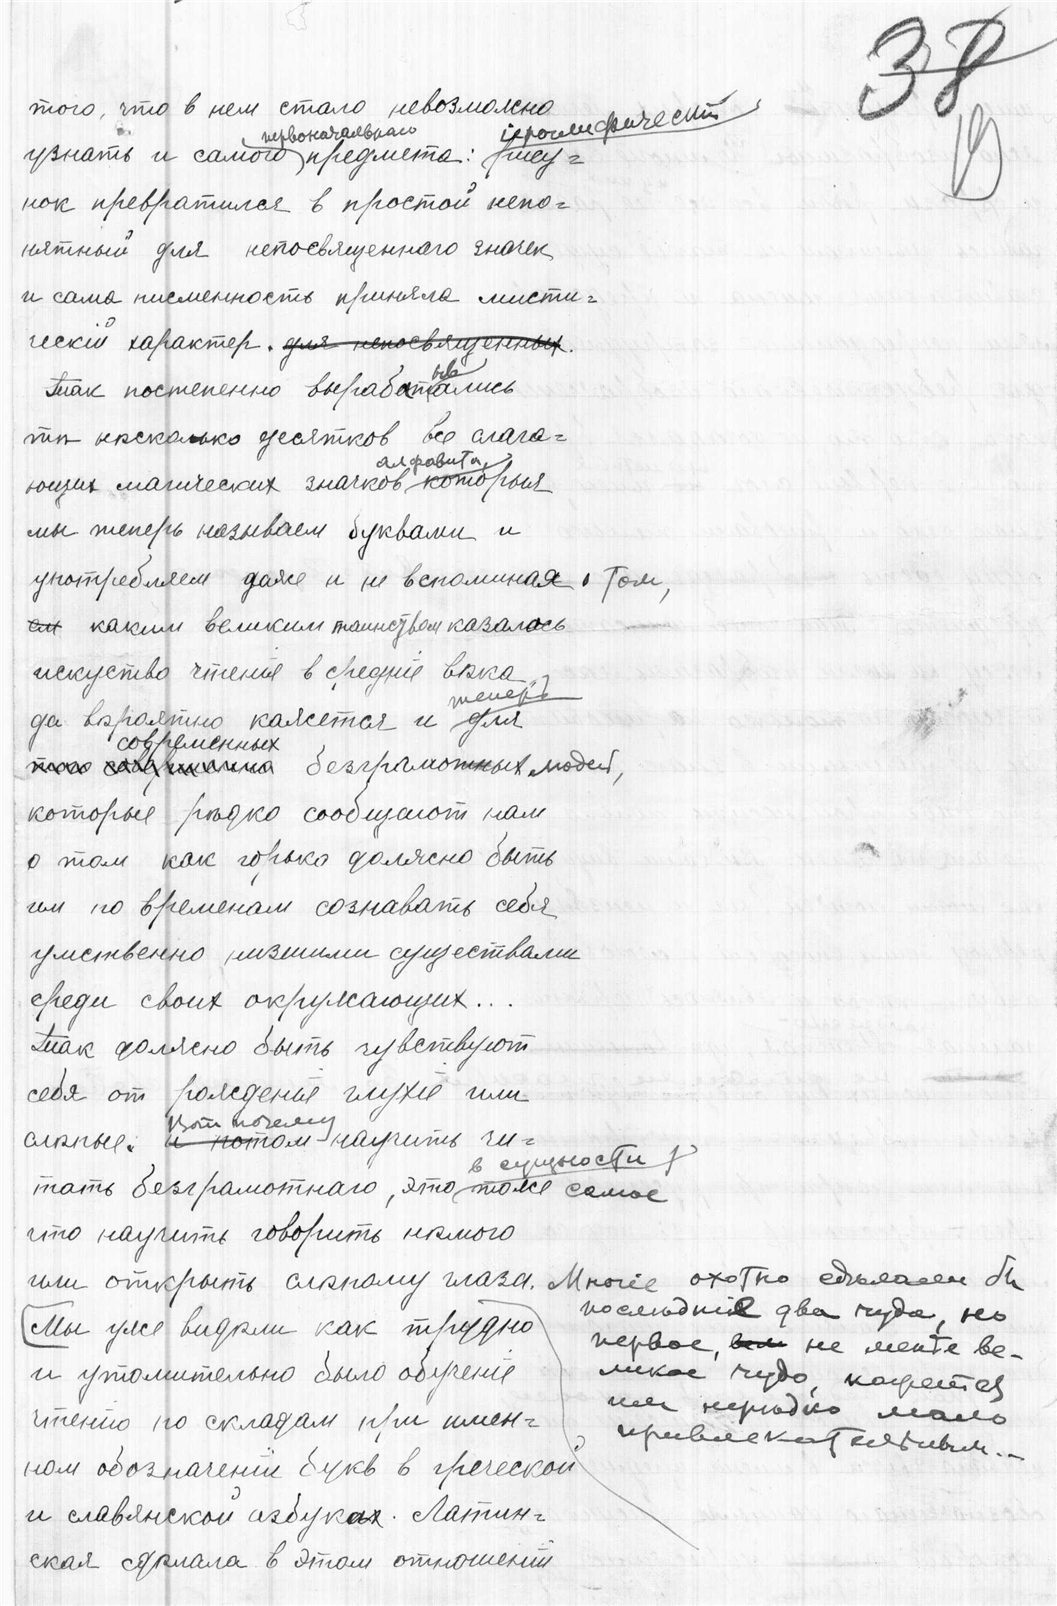 38
19
того, что в нем стало невозможно
первоначальнаго іероглифическій
узнать и самого предмета: рису=
нок превратился в простой непо=
нятный для непосвященнаго значек
и сама письменность приняла мисти=
ческій характер. для непосвященных.
Так постепенно выработались
ыва
тѣ нѣсколько десятков все слага=
алфавита,
ющих магических значков которыя
мы теперь называем буквами и
употребляем даже и не вспоминая о том,
каким великим таинством казалось
искуство чтенія в средніе вѣка
теперь
да вѣроятно кажется и для
современных
того совершенно безграмотных людей,
которые рѣдко сообщают нам
о том как горько должно быть
им по временам сознавать себя
умственно низшими существами
среди своих окружающих...
Так должно быть чувствуют
себя от рожденія глухіе или
Вот почему
слѣпые. И потом научить чи=
в сущности
тать безграмотнаго, это тоже самое
что научить говорить нѣмого
или открыть слѣпому глаза. Многіе охотно сдѣлали бы
послѣдніе два чуда, но
первое, не менѣе ве-
ликое чудо, кажется
им нерѣдко мало
привлекательным...
Мы уже видѣли как трудно
и утомительно было обученіе
чтенію по складам при имен=
ном обозначеніи букв в греческой
и славянской азбуках. Латин=
ская сдѣлала в этом отношеніи